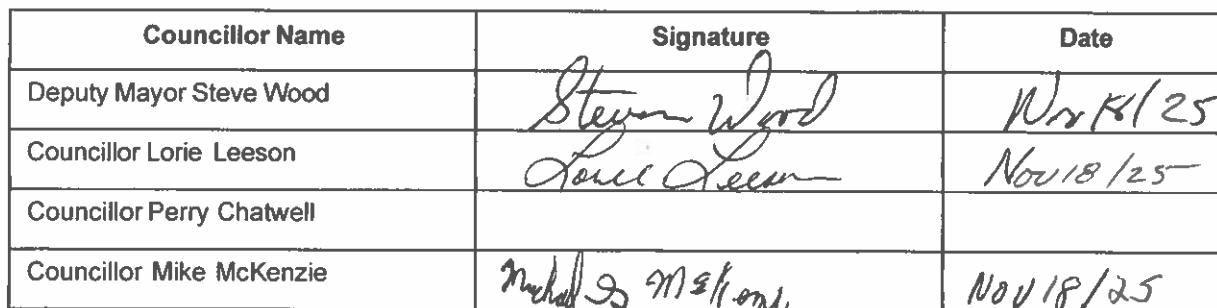 Councillor Name Signature Date
Deputy Mayor Steve Wood Steven Wood Nov 18/25
Councillor Lorie Leeson Lorie Leeson Nov 18/25
Councillor Perry Chatwell
Councillor Mike McKenzie Michael McKenzie Nov 18/25